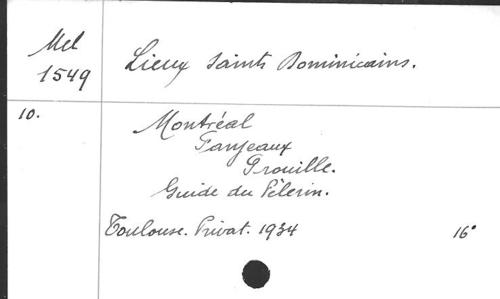 Mel
1549
Lieux Saints Dominicains.
10.
Montréal
Fanjeaux
Prouille.
Guide du Pèlerin.
Toulouse. Privat. 1934
16°